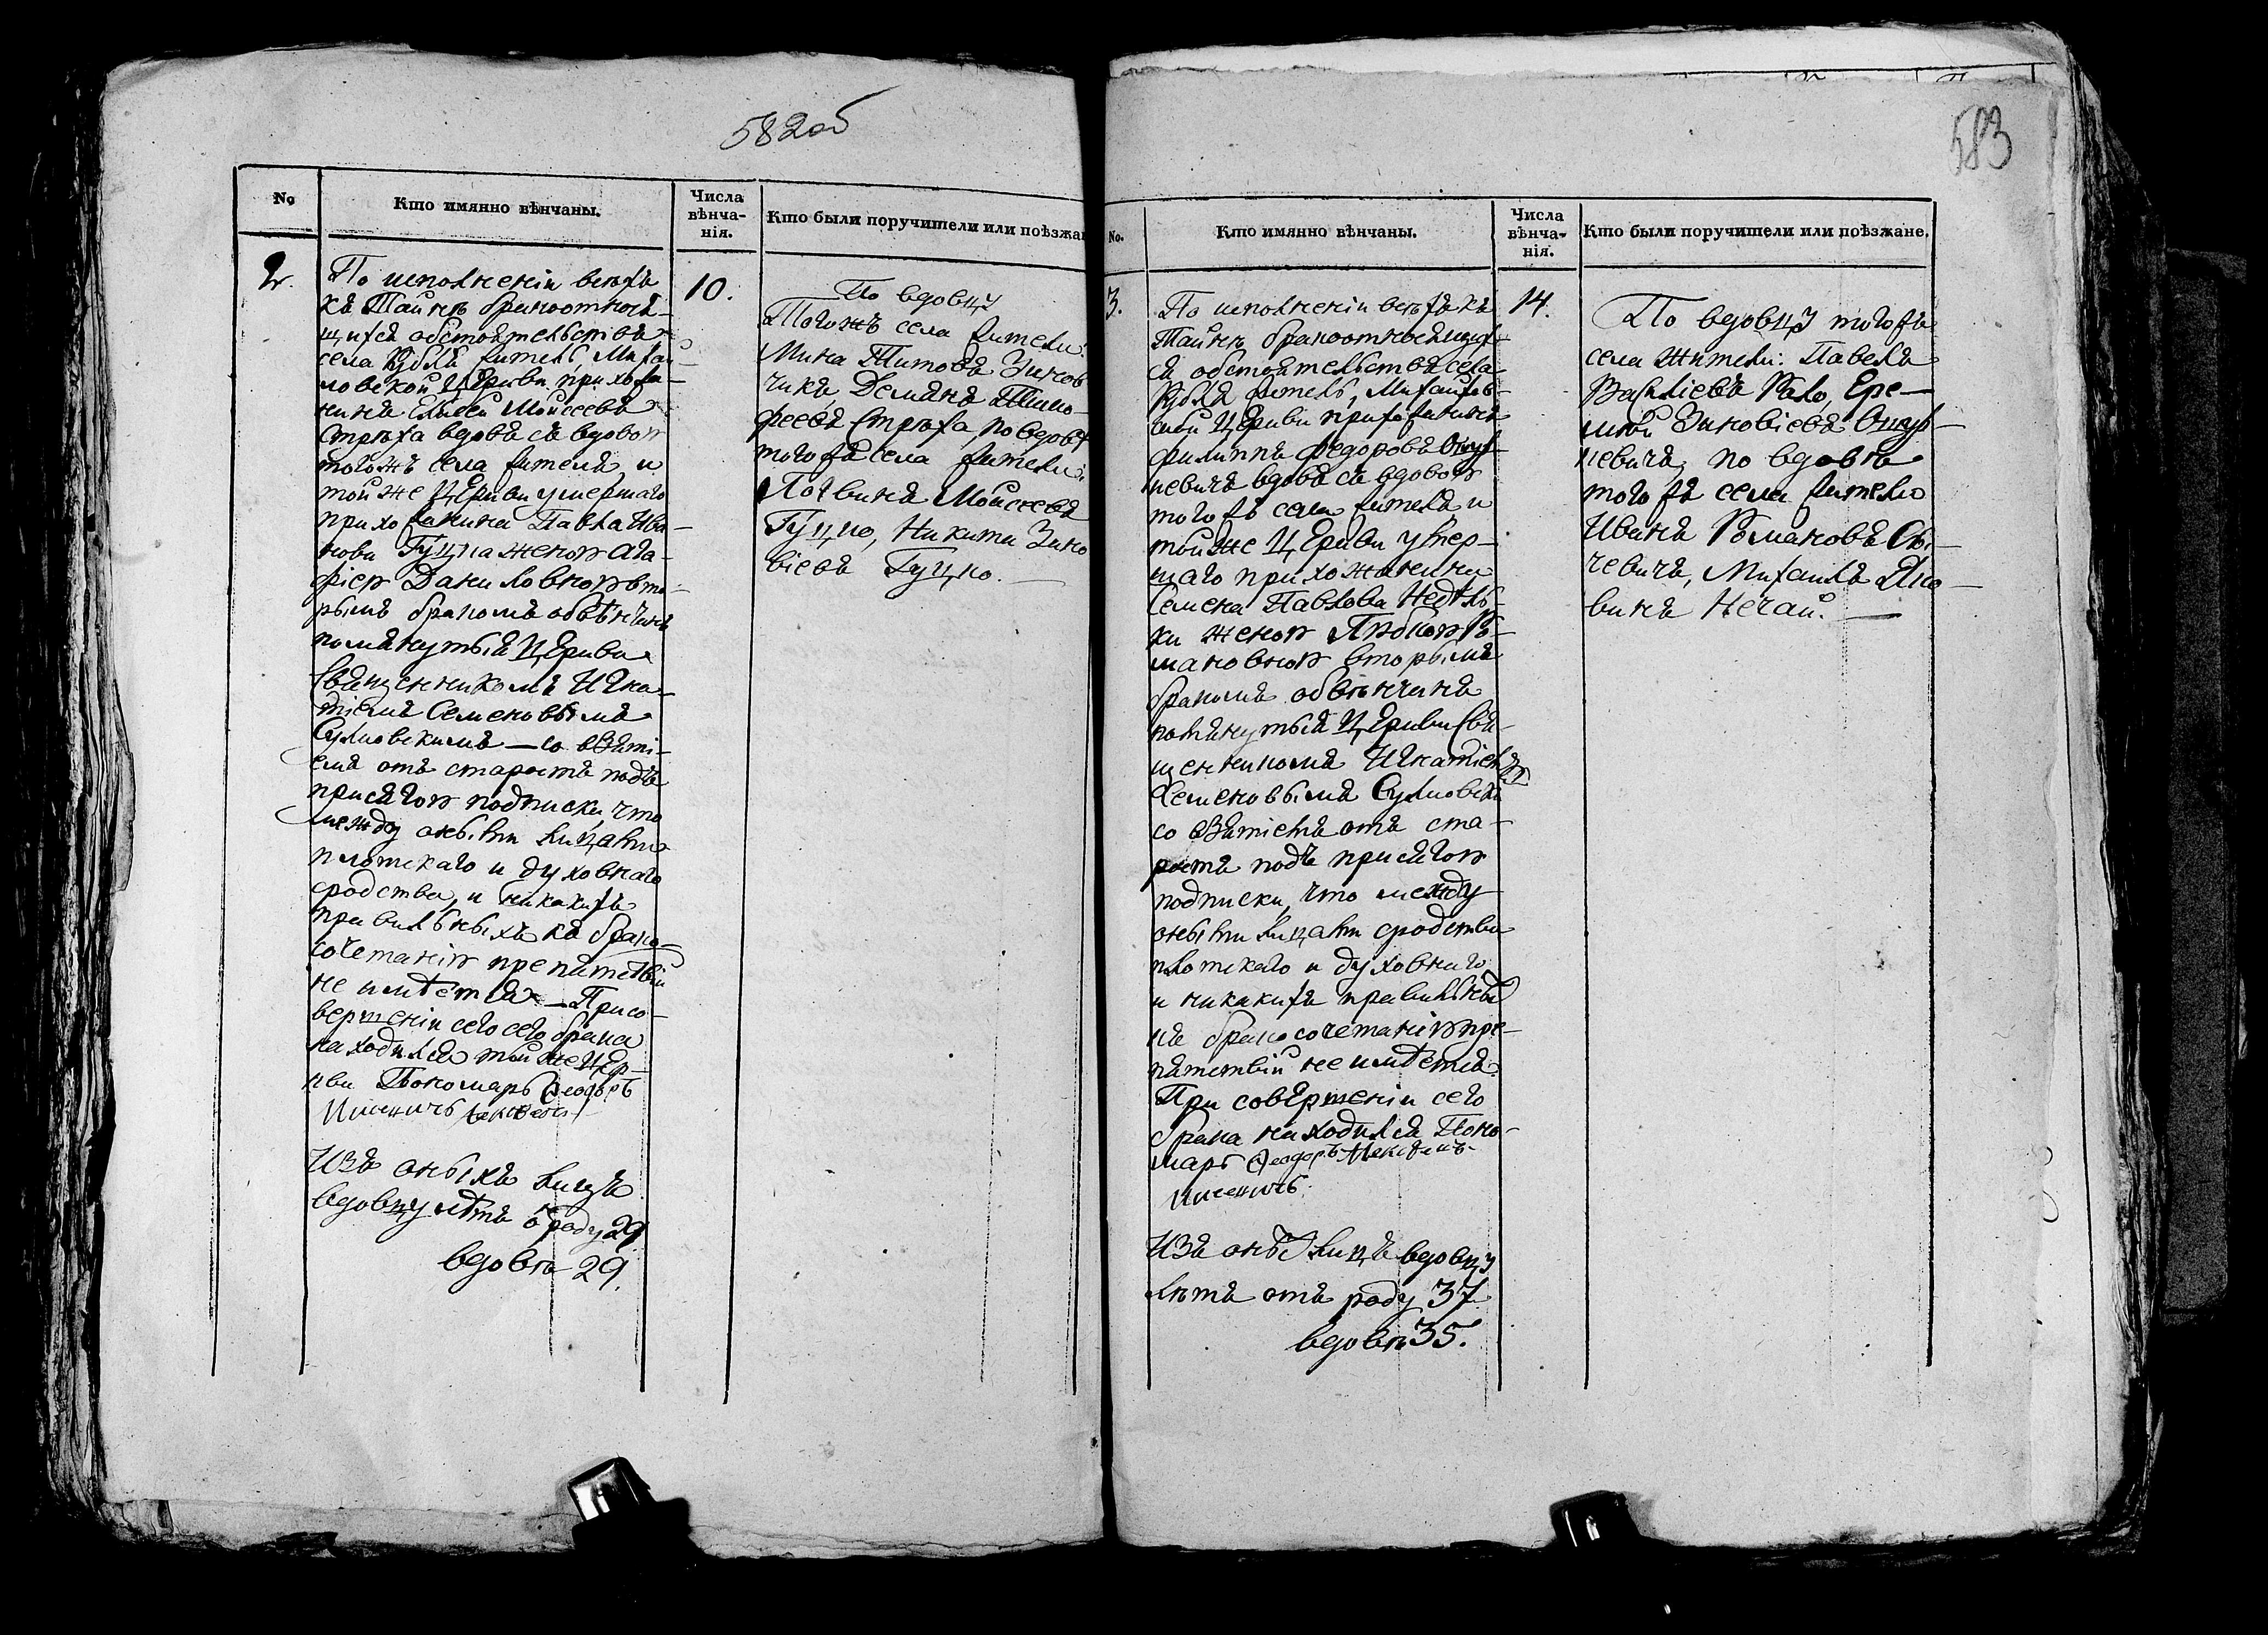 582об
№
Кто имянно вѣнчаны.
Числа
вѣнча-
нія.
Кто были поручители или поѣзжан
2.
По исполненіи всѣхъ
къ Тайнѣ бракоотнося-
щихся обстоятельствъ
села Рубля житель, Михай-
ловской Церкви прихожа-
нинъ Елисей Моисеевъ
Стрѣха вдовъ съ вдовою
тогожъ села жителя и
той же Церкви умершаго
прихожанина Павла Ива-
нова Гуцка женою Ага-
фіею Даниловною вто-
рымъ бракомъ обвѣнчанъ
помянутыя Церкви
Священникомъ Игна-
тіемъ Семеновымъ
Сулковскимъ — со взяті-
емъ отъ старостъ подъ
присягою подписки, что
между оными лицами
плотскаго и духовнаго
сродства, и никакихъ
правильныхъ къ брако-
сочетанію препятствій
не имѣется. — При со-
вершеніи сего сего брака
находился той же Цер-
кви Пономарь Феодоръ
Изъ оныхъ лицъ
вдовцу лѣтъ о роду 29.
вдовѣ 29.
10.
По вдовцу
Тогожъ села жители:
Мина Титовъ Зинов
чикъ, Демянъ Тимо-
феевъ Стрѣха, по вдовѣ
тогожъ села жители
Логвинъ Моисеевъ
Гуцко, Никита Зино
віевъ Гуцко.
583
No.
Кто имянно вѣнчаны.
Числа
вѣнча-
нія.
Кто были поручители или поѣзжане.
3.
По исполненіи всѣхъ къ
Тайнѣ бракоотносящих-
ся обстоятельствъ села
Рубля житель, Михайлов-
ской Церкви прихожанинъ
Филиппъ Федоровъ
невичъ вдовъ съ вдовою
тогожъ села жителя и
той же Церкви умер-
шаго прихожанина
Семена Павлова Недѣль-
ки женою Любою Ро-
мановною вторымъ
бракомъ обвѣнчанъ
помянутыя Церкви Свя-
щенникомъ Игнатіемъ
Семеновымъ Сулковски
со взятіемъ отъ ста-
ростъ подъ присягою
подписки, что между
оными лицами сродства
плотскаго и духовнаго
и никакихъ правильных
къ бракосочетанію пре-
пятствій не имѣется.
При совершеніи сего
брака находился Поно-
марь Феодоръ
Изъ оных лицъ вдовцу
лѣтъ отъ роду 37
вдовѣ 35.
14.
По вдовцу тогожъ
села жители: Павелъ
Василіевъ Рало, Ере-
мѣй Зиновіевъ
невичъ, по вдовѣ
тогожъ села жители
Иванъ Романовъ
чевичъ, Михаилъ Яко-
винъ Нечай.